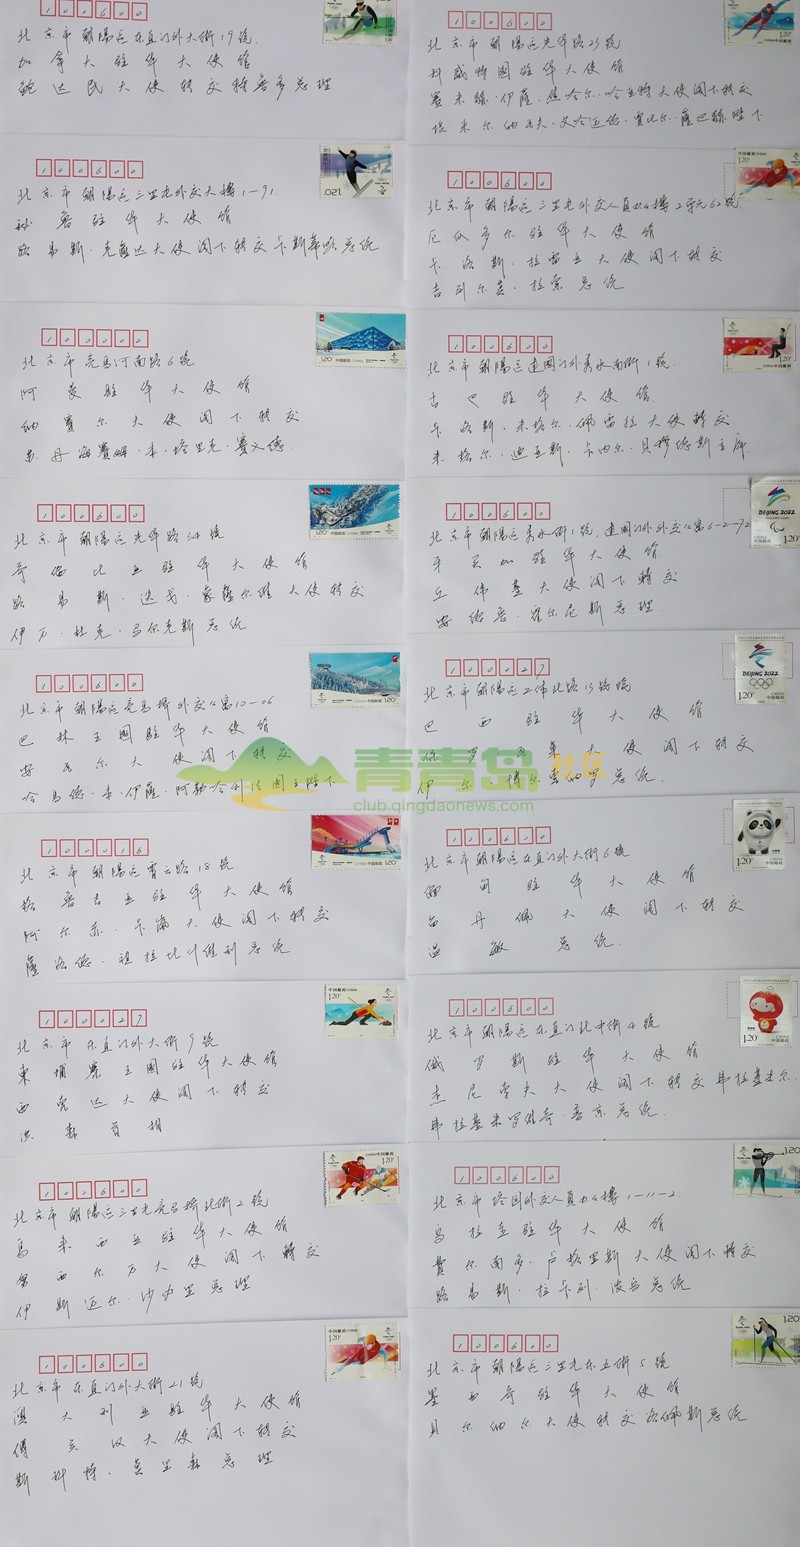 100600
北京市朝陽区东直门外大街19號
加拿大驻华大使馆
鲍达民大使转交特鲁多总理
100600
北京市朝陽区三里屯外交大樓1-91
秘魯驻华大使馆
路易斯·克萨达大使阁下转交卡斯蒂略总统
100600
北京市亮马河南路6號
阿曼驻华大使馆
納賽尔大使阁下转交
苏丹海賽姆·本·塔里克·賽义德
100600
北京市朝陽区光华路34號
哥倫比亚驻华大使馆
路易斯·迭戈·蒙薩尔維大使转交
伊万·杜克·马尔克斯总统
100600
北京市朝陽区亮马桥外交公寓10-06
巴林王國驻华大使馆
安瓦尔大使阁下转交
哈马德·本·伊薩·阿勒哈利法國王陛下
100016
北京市朝陽区霄云路18號
格魯吉亚驻华大使馆
阿尔京·卡岚大使阁下转交
薩洛德·祖拉比什維利总统
100027
北京市东直门外大街9號
柬埔寨王國驻华大使馆
西宪达大使阁下转交
洪森首相
100600
北京市朝陽区三里屯亮马桥北街2號
马来西亚驻华大使馆
努西尔万大使阁下轉交
伊斯迈尔·沙必里总理
100600
北京市东直门外大街21號
澳大利亚驻华大使馆
傅关汉大使阁下转交
斯科特·莫里森总理
100600
北京市朝陽区光华路23號
科威特國驻华大使馆
100600
北京市朝陽区三里屯外交人員办公樓2單元62號
厄瓜多尔驻华大使馆
卡洛斯·拉雷亚大使阁下转交
吉列尔莫·拉索总统
100600
北京市朝陽区建國门外秀水南街1號
古巴驻华大使馆
卡洛斯·米格尔·佩雷拉大使轉交
米格尔·迪亚斯·卡内尔·貝穆德斯主席
100600
北京市朝陽区秀水街1號建國门外外交公寓6-2-72
牙买加驻华大使馆
丘偉基大使阁下轉交
安德魯·霍尔尼斯总理
100027
巴西驻华大使馆
保罗瓦萊大使阁下转交
伊尔·博尔索纳罗总统
100600
北京市朝陽区东直门外大街6號
緬甸驻华大使馆
苗丹佩大使阁下转交
温敏总统
100600
北京市朝陽区东直门北中街4號
俄罗斯驻华大使馆
杰尼索夫大使阁下转交弗拉基米尔·
弗拉基米罗维奇·普京总统
100600
北京市塔园外交人員办公樓1-11-2
乌拉圭驻华大使馆
費尔南多·卢格里斯大使阁下轉交
路易斯·拉卡列·波乌总统
100600
北京市朝陽区三里屯东五街5號
墨西哥驻华大使馆
貝尔納尔大使转交洛佩斯总统
BEIJING 2022
BEIJING 2022
青青岛社区
club.qingdaonews.com